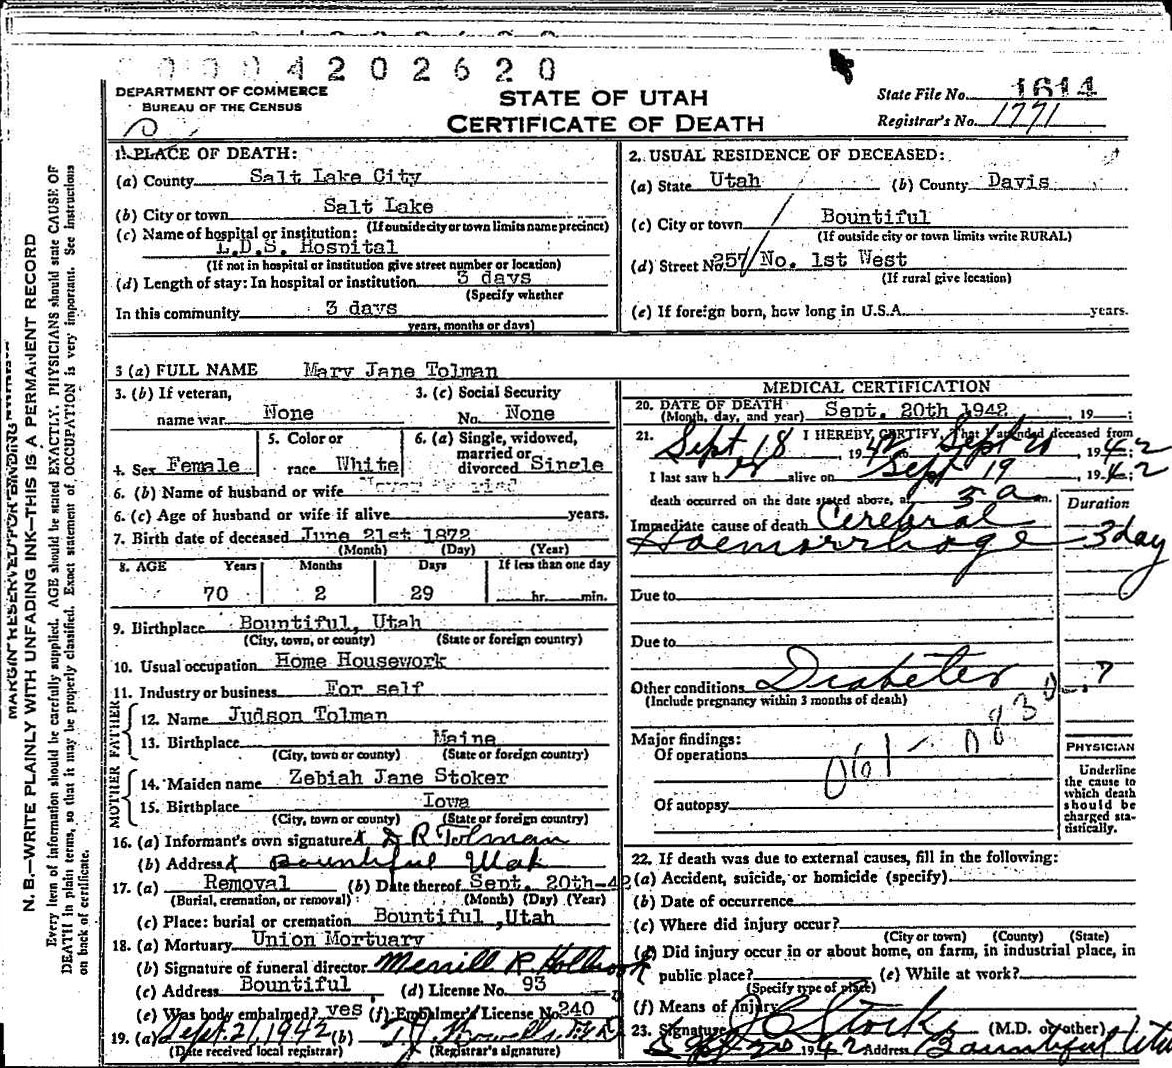 0004202620
DEPARTMENT OF COMMERCE
BUREAU OF THE CENSUS
STATE OF UTAH
CERTIFICATE OF DEATH
State File No. 1614
Registrar's No. 1771
1. PLACE OF DEATH:
(a) County Salt Lake City
(b) City or town Salt Lake
(If outside city or town limits name precinct)
(c) Name of hospital or institution:
L.D.S. Hospital
(If not in hospital or institution give street number or location)
(d) Length of stay: In hospital or institution 3 days
(Specify whether
In this community 3 days
years, months or days)
2. USUAL RESIDENCE OF DECEASED:
(a) State Utah (b) County Davis
(c) City or town Bountiful
(If outside city or town limits write RURAL)
(d) Street No. 257 No. 1st West
(If rural give location)
(e) If foreign born, how long in U.S.A. years.
3 (a) FULL NAME Mary Jane Tolman
3. (b) If veteran, name war None
3. (c) Social Security No. None
4. Sex Female
5. Color or race White
6. (a) Single, widowed, married or divorced Single
6. (b) Name of husband or wife Never Married
6. (c) Age of husband or wife if alive years.
7. Birth date of deceased June 21st 1872
(Month) (Day) (Year)
8. AGE Years Months Days If less than one day
70 2 29 hr. min.
9. Birthplace Bountiful, Utah
(City, town, or county) (State or foreign country)
10. Usual occupation Home Housework
11. Industry or business For self
FATHER
12. Name Judson Tolman
13. Birthplace Maine
(City, town or county) (State or foreign country)
MOTHER
14. Maiden name Zebiah Jane Stoker
15. Birthplace Iowa
(City, town or county) (State or foreign country)
16. (a) Informant's own signature x D R Tolman
(b) Address x Bountiful Utah
17. (a) Removal (b) Date thereof Sept. 20th-42
(Burial, cremation, or removal) (Month) (Day) (Year)
(c) Place: burial or cremation Bountiful, Utah
18. (a) Mortuary Union Mortuary
(b) Signature of funeral director Merrill R Holbrook
(c) Address Bountiful (d) License No. 93
(e) Was body embalmed? yes (f) Embalmer's License No. 240
19. (a) Sept. 21, 1942 (b)
(Date received local registrar) (Registrar's signature)
MEDICAL CERTIFICATION
20. DATE OF DEATH
(Month, day, and year) Sept. 20th 1942, 19 ;
21. I HEREBY CERTIFY, That I attended deceased from
Sept 18 1942 to Sept 20, 1942
I last saw her alive on Sept 19, 1942
death occurred on the date stated above, at 5 a m.
Duration
Immediate cause of death Cerebral
Haemorrhage 3 day
Due to
Due to
Other conditions Diabetes ?
(Include pregnancy within 3 months of death)
Major findings:
Of operations
061
Of autopsy
PHYSICIAN
Underline
the cause to
which death
should be
charged sta-
tistically.
22. If death was due to external causes, fill in the following:
(a) Accident, suicide, or homicide (specify)
(b) Date of occurrence
(c) Where did injury occur?
(City or town) (County) (State)
(d) Did injury occur in or about home, on farm, in industrial place, in
public place? (e) While at work?
(Specify type of place)
(f) Means of injury
23. Signature J C Stocks (M.D. or other)
Sept 20 1942 Address Bountiful Utah
MARGIN RESERVED FOR BINDING
N. B.—WRITE PLAINLY WITH UNFADING INK—THIS IS A PERMANENT RECORD
Every item of information should be carefully supplied. AGE should be stated EXACTLY. PHYSICIANS should state CAUSE OF
DEATH in plain terms, so that it may be properly classified. Exact statement of OCCUPATION is very important. See instructions
on back of certificate.